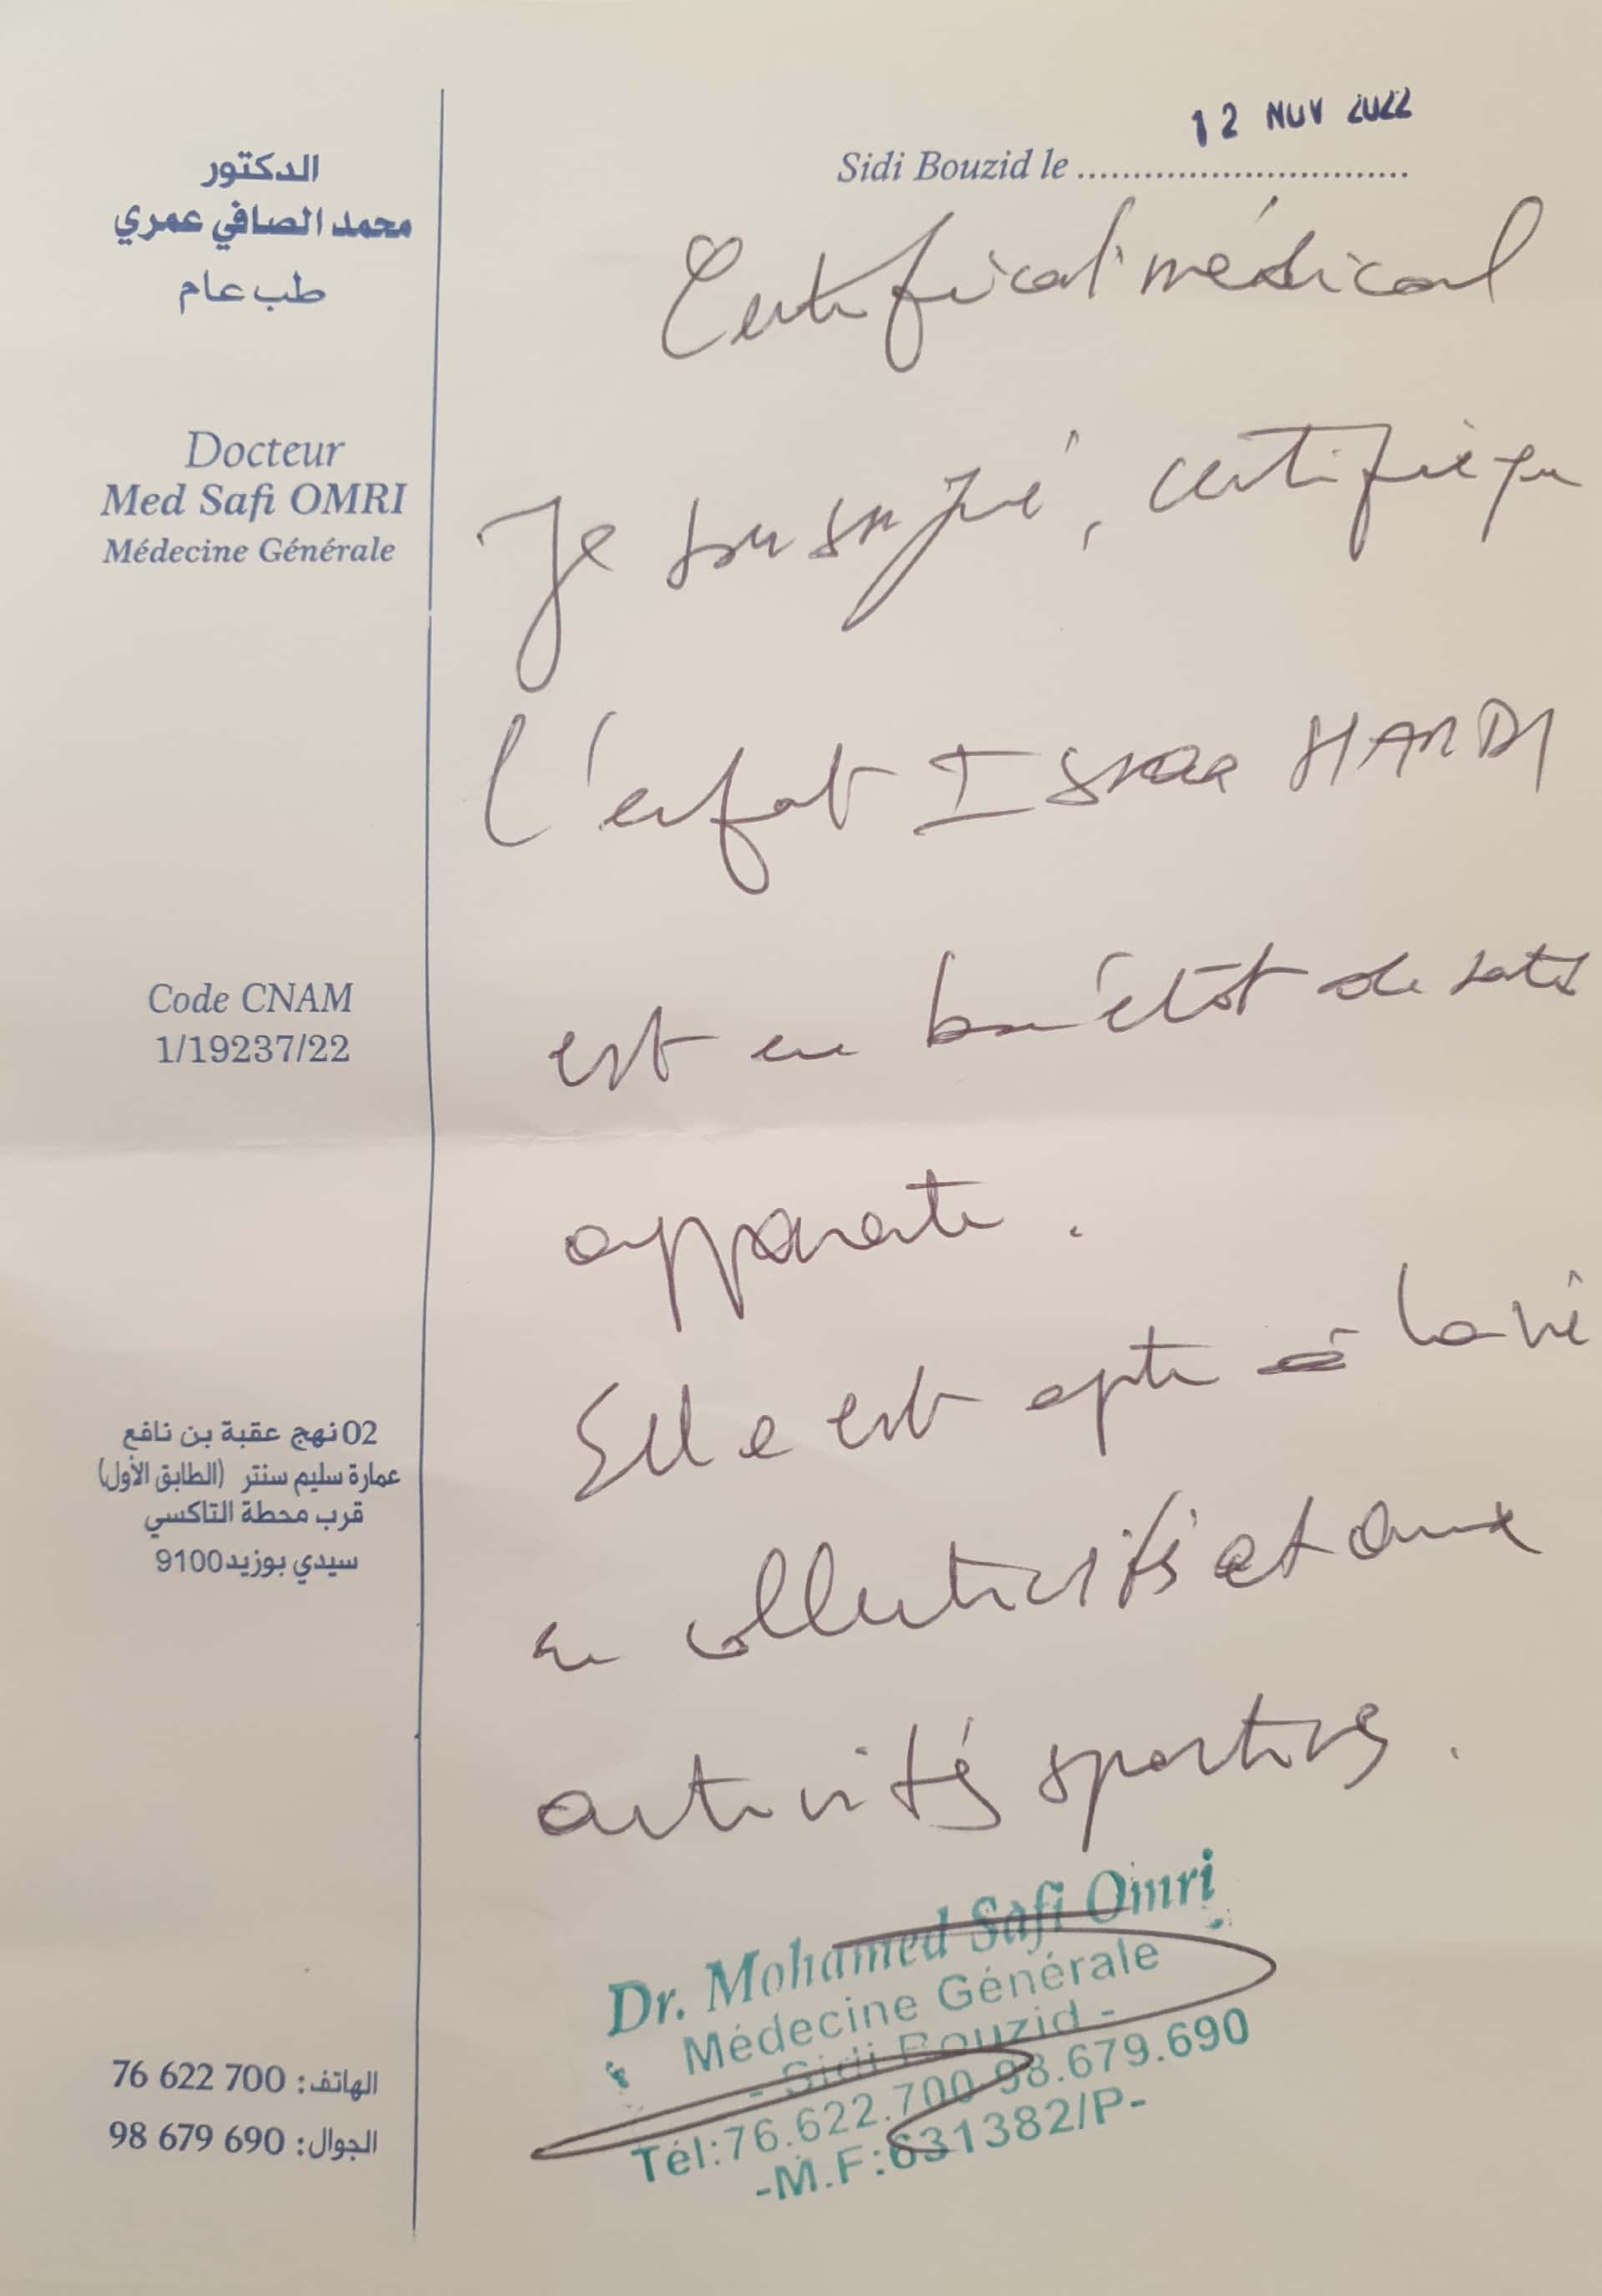 الدكتور
محمد الصافي عمري
طب عام
Docteur
Med Safi OMRI
Médecine Générale
Code CNAM
1/19237/22
02 نهج عقبة بن نافع
عمارة سليم سنتر (الطابق الأول)
قرب محطة التاكسي
سيدي بوزيد 9100
الهاتف: 76 622 700
الجوال: 98 679 690
12 NOV 2022
Sidi Bouzid le
Certificat médical
Je soussigné, certifie que
l'enfant HARDI
est en bon état de santé
apparente.
Elle est apte à la vie
en collectivités et aux
activités sportives.
Dr. Mohamed Safi Omri
Médecine Générale
- Sidi Bouzid -
Tél:76.622.700-98.679.690
-M.F:631382/P-